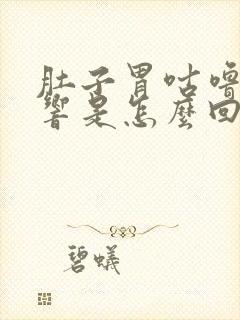 肚子胃咕嚕
響是怎麼回
碧蟻